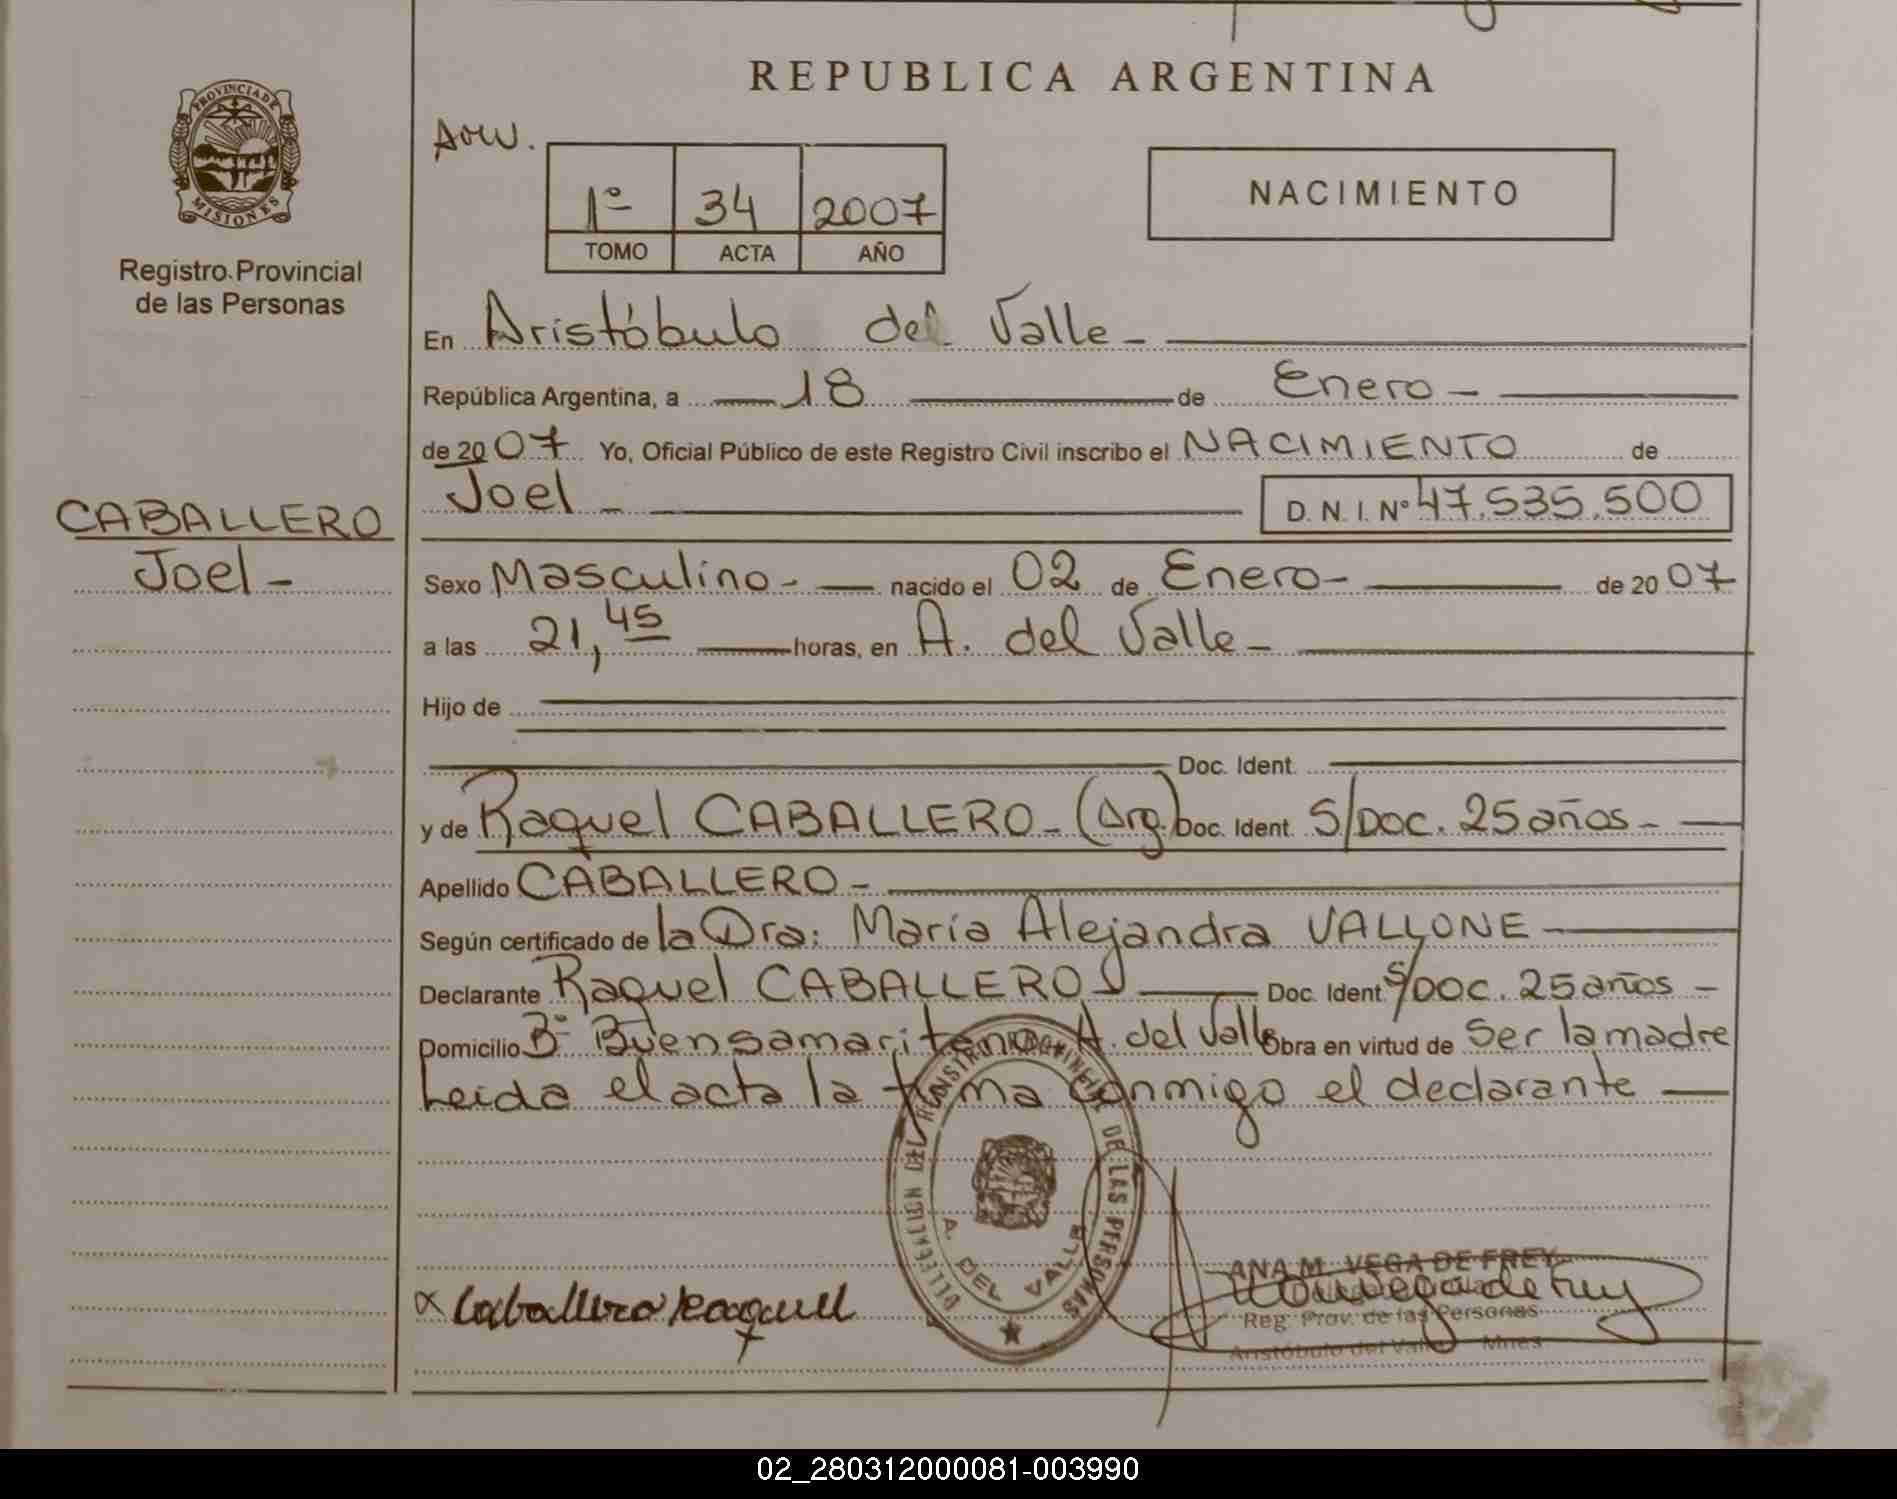 REPUBLICA ARGENTINA
PROVINCIA DE MISIONES
Registro Provincial
de las Personas
1º 34 2007
TOMO ACTA AÑO
NACIMIENTO
En Aristóbulo del Valle -
República Argentina, a 18 de Enero -
de 2007 Yo, Oficial Público de este Registro Civil inscribo el NACIMIENTO de
Joel - D. N. I. Nº 47.535.500
CABALLERO
Joel -
Sexo Masculino - nacido el 02 de Enero - de 2007
a las 21,45 horas, en A. del Valle -
Hijo de
Doc. Ident.
y de Raquel CABALLERO - (Arg.) Doc. Ident. S/Doc. 25 años -
Apellido CABALLERO -
Según certificado de la Dra: María Alejandra VALLONE
Declarante Raquel CABALLERO Doc. Ident. S/DOC. 25 años -
Domicilio Bº Buen samaritano A. del Valle Obra en virtud de Ser la madre
Leida el acta la firma conmigo el declarante
DEL REGISTRO PROVINCIAL DE LAS PERSONAS
A. DEL VALLE
Caballero Raquel
ANA M. VEGA DE FREY
Reg. Prov. de las Personas
Aristóbulo del Valle - Mnes
02_280312000081-003990